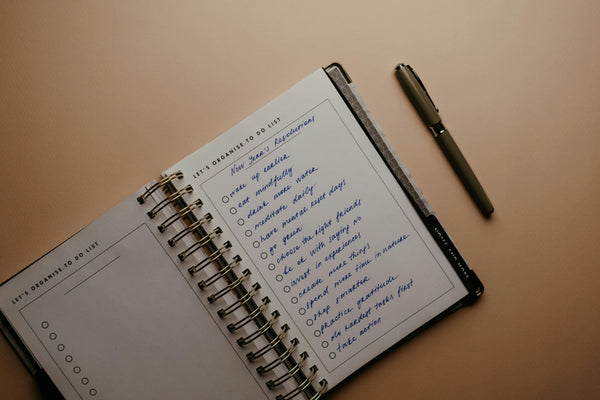 LET'S ORGANISE-TO DO LIST
LET'S ORGANISE-TO DO LIST
New Year's Resolutions
wake up earlier
eat mindfully
drink more water
meditate daily
have mental reset days
go green
choose the right friends
be ok with saying NO
invest in experiences
create more things
spend more time in nature
shop smarter
practice gratitude
do hardest tasks first
take action